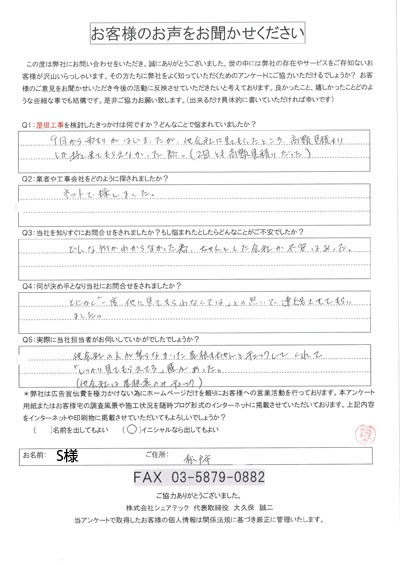 お客様のお声をお聞かせください
この度は弊社にお問い合わせをいただき、誠にありがとうございました。世の中には弊社の存在やサービスをご存知ないお
客様が沢山いらっしゃいます。その方たちに弊社をよく知っていただくためのアンケートにご協力いただけるでしょうか? お客
様のご意見をお聞かせいただき今後の活動に反映させていただきたいと考えております。良かったこと、嬉しかったことどのよ
うな些細な事でも結構です。是非ご協力お願い致します。(出来るだけ具体的に書いていただければ幸いです)
Q1:屋根工事を検討したきっかけは何ですか?どんなことで悩まれていましたか?
9月から雨もりがはじまったが、他会社に見てもらったところ、高額見積より
しか持て来てもらえなかった為。(2回とも高額見積りだった)
Q2:業者や工事会社をどのように探されましたか?
ネットで探しました。
Q3:当社を知りすぐにお問合せをされましたか?もし悩まれたとしたらどんなことがご不安でしたか?
どんな所かわからなかった為、ちゃんとした会社か不安はあった。
Q4:何が決め手となり当社にお問合せをされましたか?
とにかく「一度、他に見てもらわなくては」との思いで連絡させて
ました。
Q5:実際に当社担当者がお伺いしていかがでしたでしょうか?
他会社の人が
「しっかり見てもらえてる」感があった。
(他会社は屋根裏のみチェック)
*弊社は広告宣伝費を極力かけない為にホームページだけを頼りにお客様への営業活動を行っております。本アンケート
用紙またはお客様宅の調査風景や施工状況を随時ブログ形式のインターネットに掲載させていただいております。上記内容
をインターネットや印刷物に掲載させていただいてもよろしいでしょうか?
( )名前を出してもよい (○)イニシャルなら出してもよい
お名前: S様 ご住所:
FAX 03-5879-0882
ご協力ありがとうございました。
株式会社シェアテック 代表取締役 大久保 誠二
当アンケートで取得したお客様の個人情報は関係法規に基づき厳正に管理いたします。